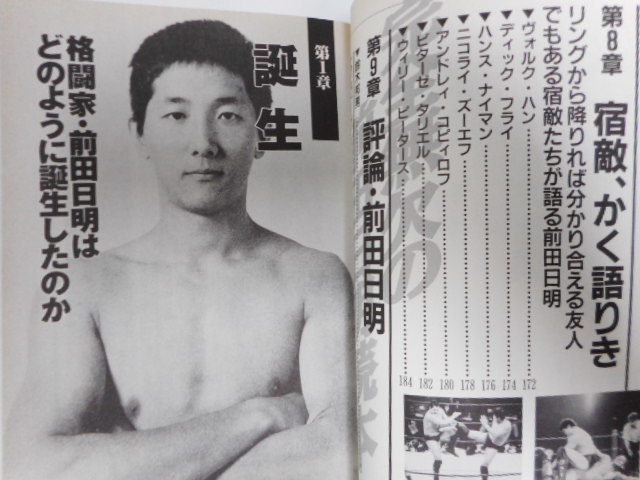 第8章 宿敵、かく語りき
リングから降りれば分かり合える友人
でもある宿敵たちが語る前田日明
▼ヴォルク・ハン……172
▼ディック・フライ……174
▼ハンス・ナイマン……176
▼ニコライ・ズーエフ……178
▼アンドレィ・コピィロフ……180
▼ビターゼ・タリエル……182
▼ウィリー・ピータース……184
第9章 評論・前田日明
第1章
誕生
格闘家・前田日明は
どのように誕生したのか